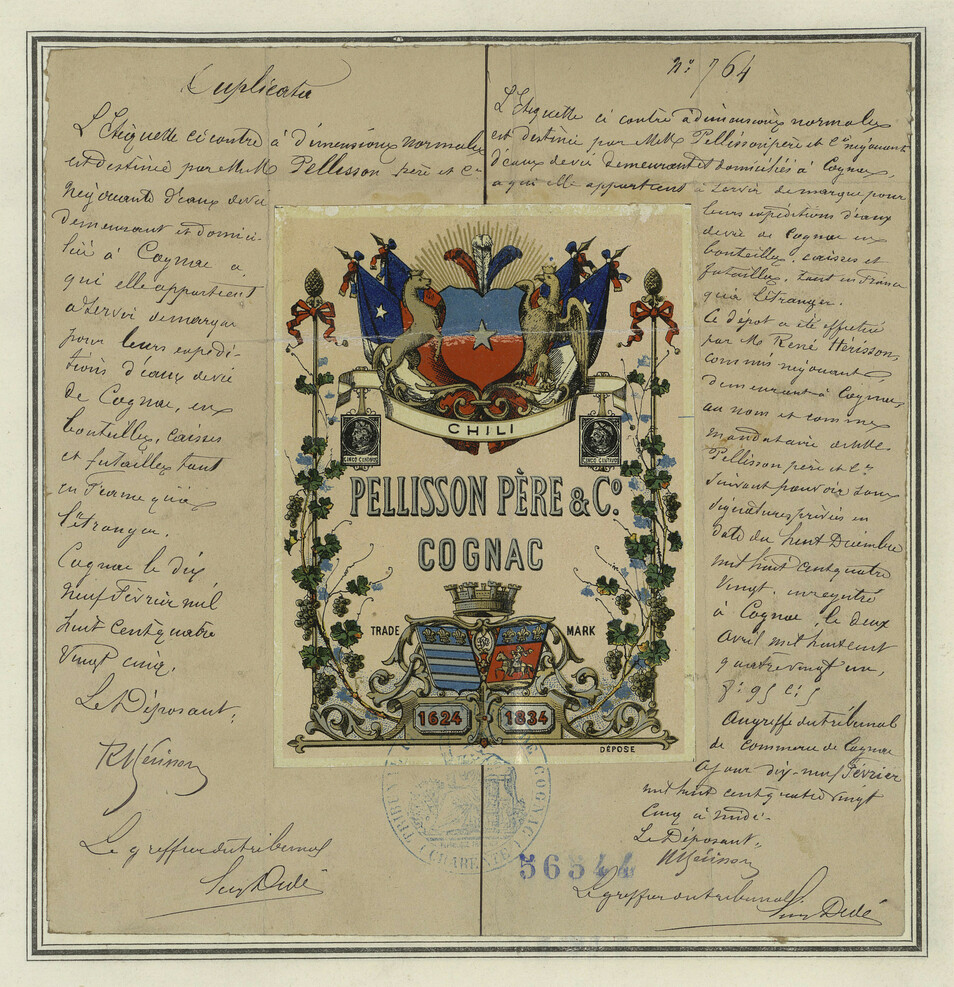 Duplicata
L'Etiquette ci contre à dimensions normales
est destinée par MM Pellisson père et Cie
Négociants d'eaux de vie
demeurant et domici-
liés à Cognac a
qui elle appartient
a servir de marque
pour leurs expédi-
tions d'eaux de vie
de Cognac, en
bouteilles, caisses
et futailles tant
en France qu'à
l'étranger.
Cognac le dix
neuf Février mil
huit cent quatre
vingt cinq.
Le Déposant,
R Hérisson
Le greffier du tribunal
No 764
L'Etiquette ci contre à dimensions normales
est destinée par MM Pellisson père et Cie négociants
d'eaux de vie demeurant et domiciliés à Cognac,
a qui elle appartient à servir de marque pour
leurs expéditions d'eaux
de vie de Cognac en
bouteilles, caisses et
futailles, tant en France
qu'à l'étranger.
Ce dépôt a été effectué
par Mr René Hérisson,
commis négociant,
demeurant à Cognac,
au nom et comme
mandataire de MM
Pellisson père et Cie
suivant pouvoir sous
signatures privées en
date du huit Décembre
mil huit cent quatre
vingt, enregistré
à Cognac, le deux
Avril mil huit cent
quatre vingt un,
fo 95 co 5
Au greffe du tribunal
de commerce de Cognac
ce jour dix-neuf Février
mil huit cent quatre vingt
cinq à midi.
Le Déposant,
R Hérisson
Le greffier du tribunal
CHILI
CINCO CENTAVOS
CINCO CENTAVOS
PELLISSON PÈRE & Co.
COGNAC
TRADE MARK
1624 1834
DÉPOSÉ
COGNAC
(CHARENTE)
56544